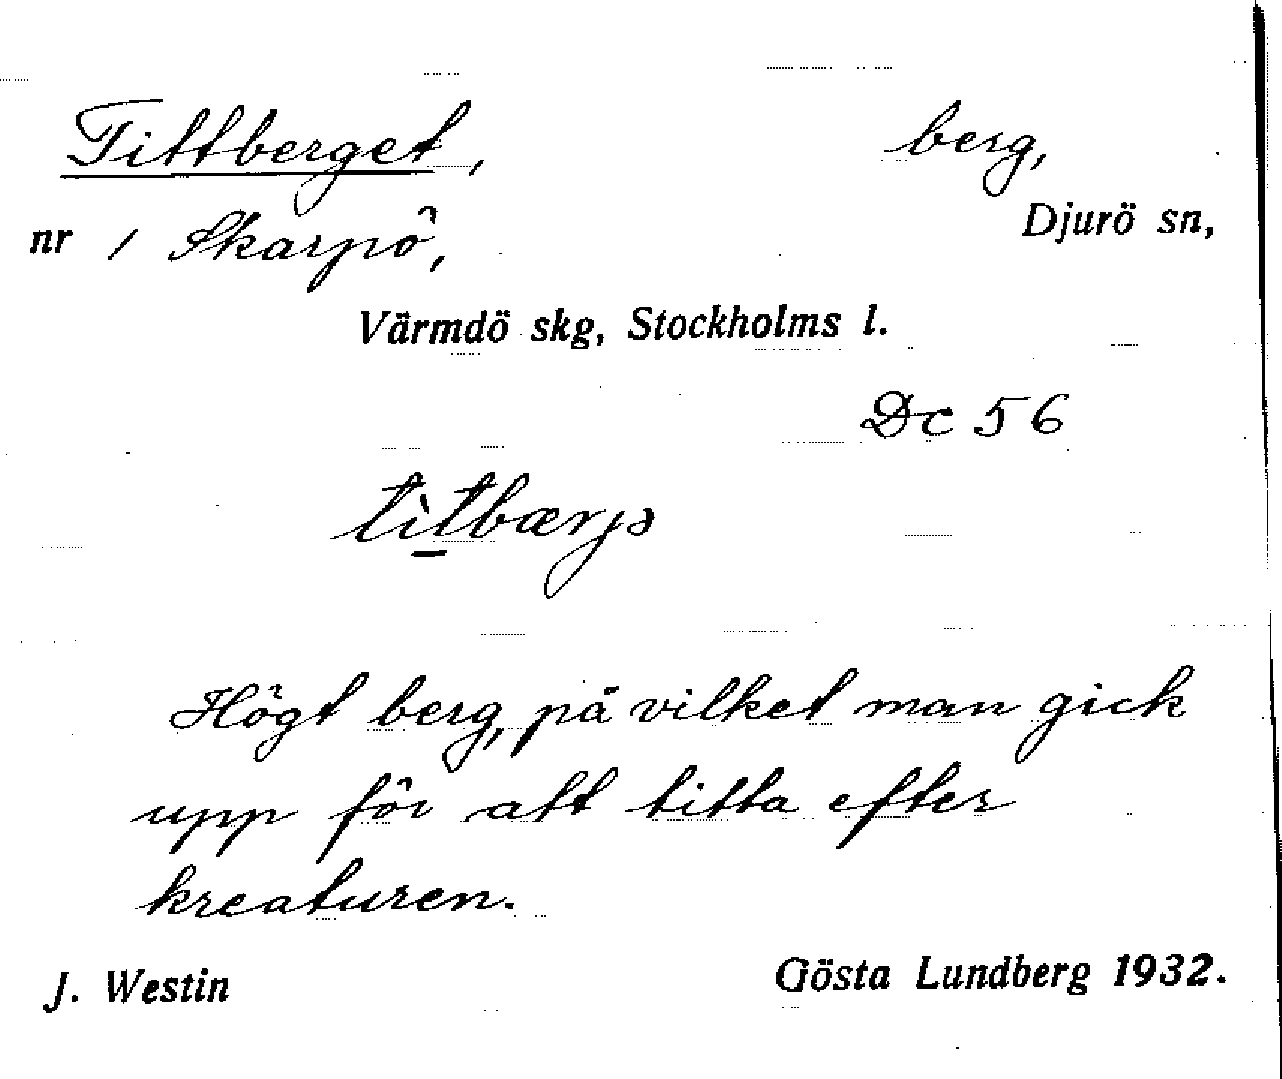 Tittberget, berg,
nr 1 Skarpö, Djurö sn,
Värmdö skg, Stockholms l.
Dc 56
Högt berg, på vilket man gick
upp för att titta efter
kreaturen.
J. Westin Gösta Lundberg 1932.